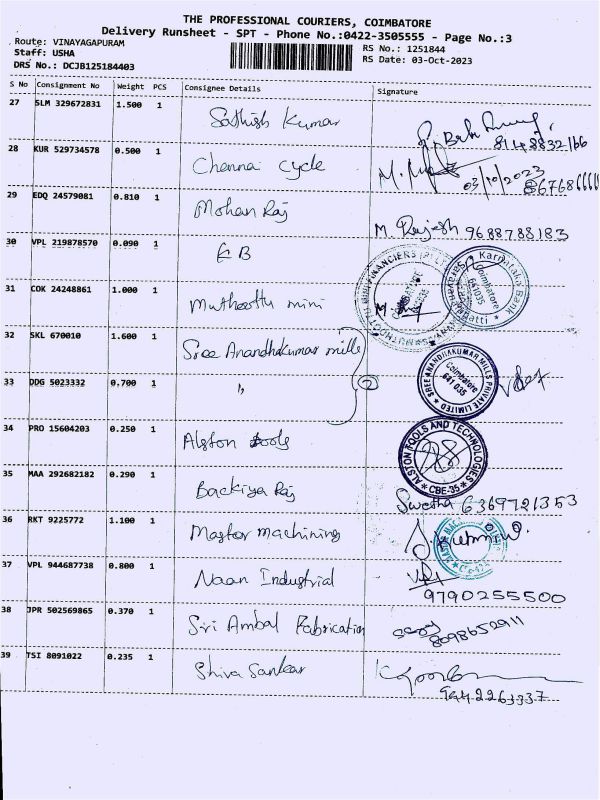 THE PROFESSIONAL COURIERS, COIMBATORE
Delivery Runsheet - SPT - Phone No.:0422-3505555 - Page No.:3
Route: VINAYAGAPURAM
RS No.: 1251844
Staff: USHA
RS Date: 03-Oct-2023
DRS No.: DCJB125184403
S No Consignment No Weight PCS Consignee Details Signature
27 SLM 329672831 1.500 1 Sathish Kumar
28 KUR 529734578 0.500 1 Chenna Cycle 03/10/2023
29 EDQ 24579081 0.810 1 Mohan Raj M. Rajesh 9688788183
30 VPL 219878570 0.090 1 KB
Karnataka Bank
Coimbatore
641035
31 COK 24248861 1.000 1 Muthoottu mini
32 SKL 670010 1.600 1 Sree Anandhakumar mills
SREE ANANDHAKUMAR MILLS PRIVATE LIMITED
Coimbatore
641 035
33 DDG 5023332 0.700 1 " 2
34 PRO 15604203 0.250 1 Alston tools
ALSTON TOOLS AND TECHNOLOGIES
* CBE-35 *
35 MAA 292682182 0.290 1 Backiya Raj Swetha 6369721353
36 RKT 9225772 1.100 1 Mastor machining
37 VPL 944687738 0.800 1 Naan Industrial
9790255500
38 JPR 502569865 0.370 1 Sri Ambal Fabrication
8098652911
39 TSI 8091022 0.235 1 Shiva Sankar
9442263337